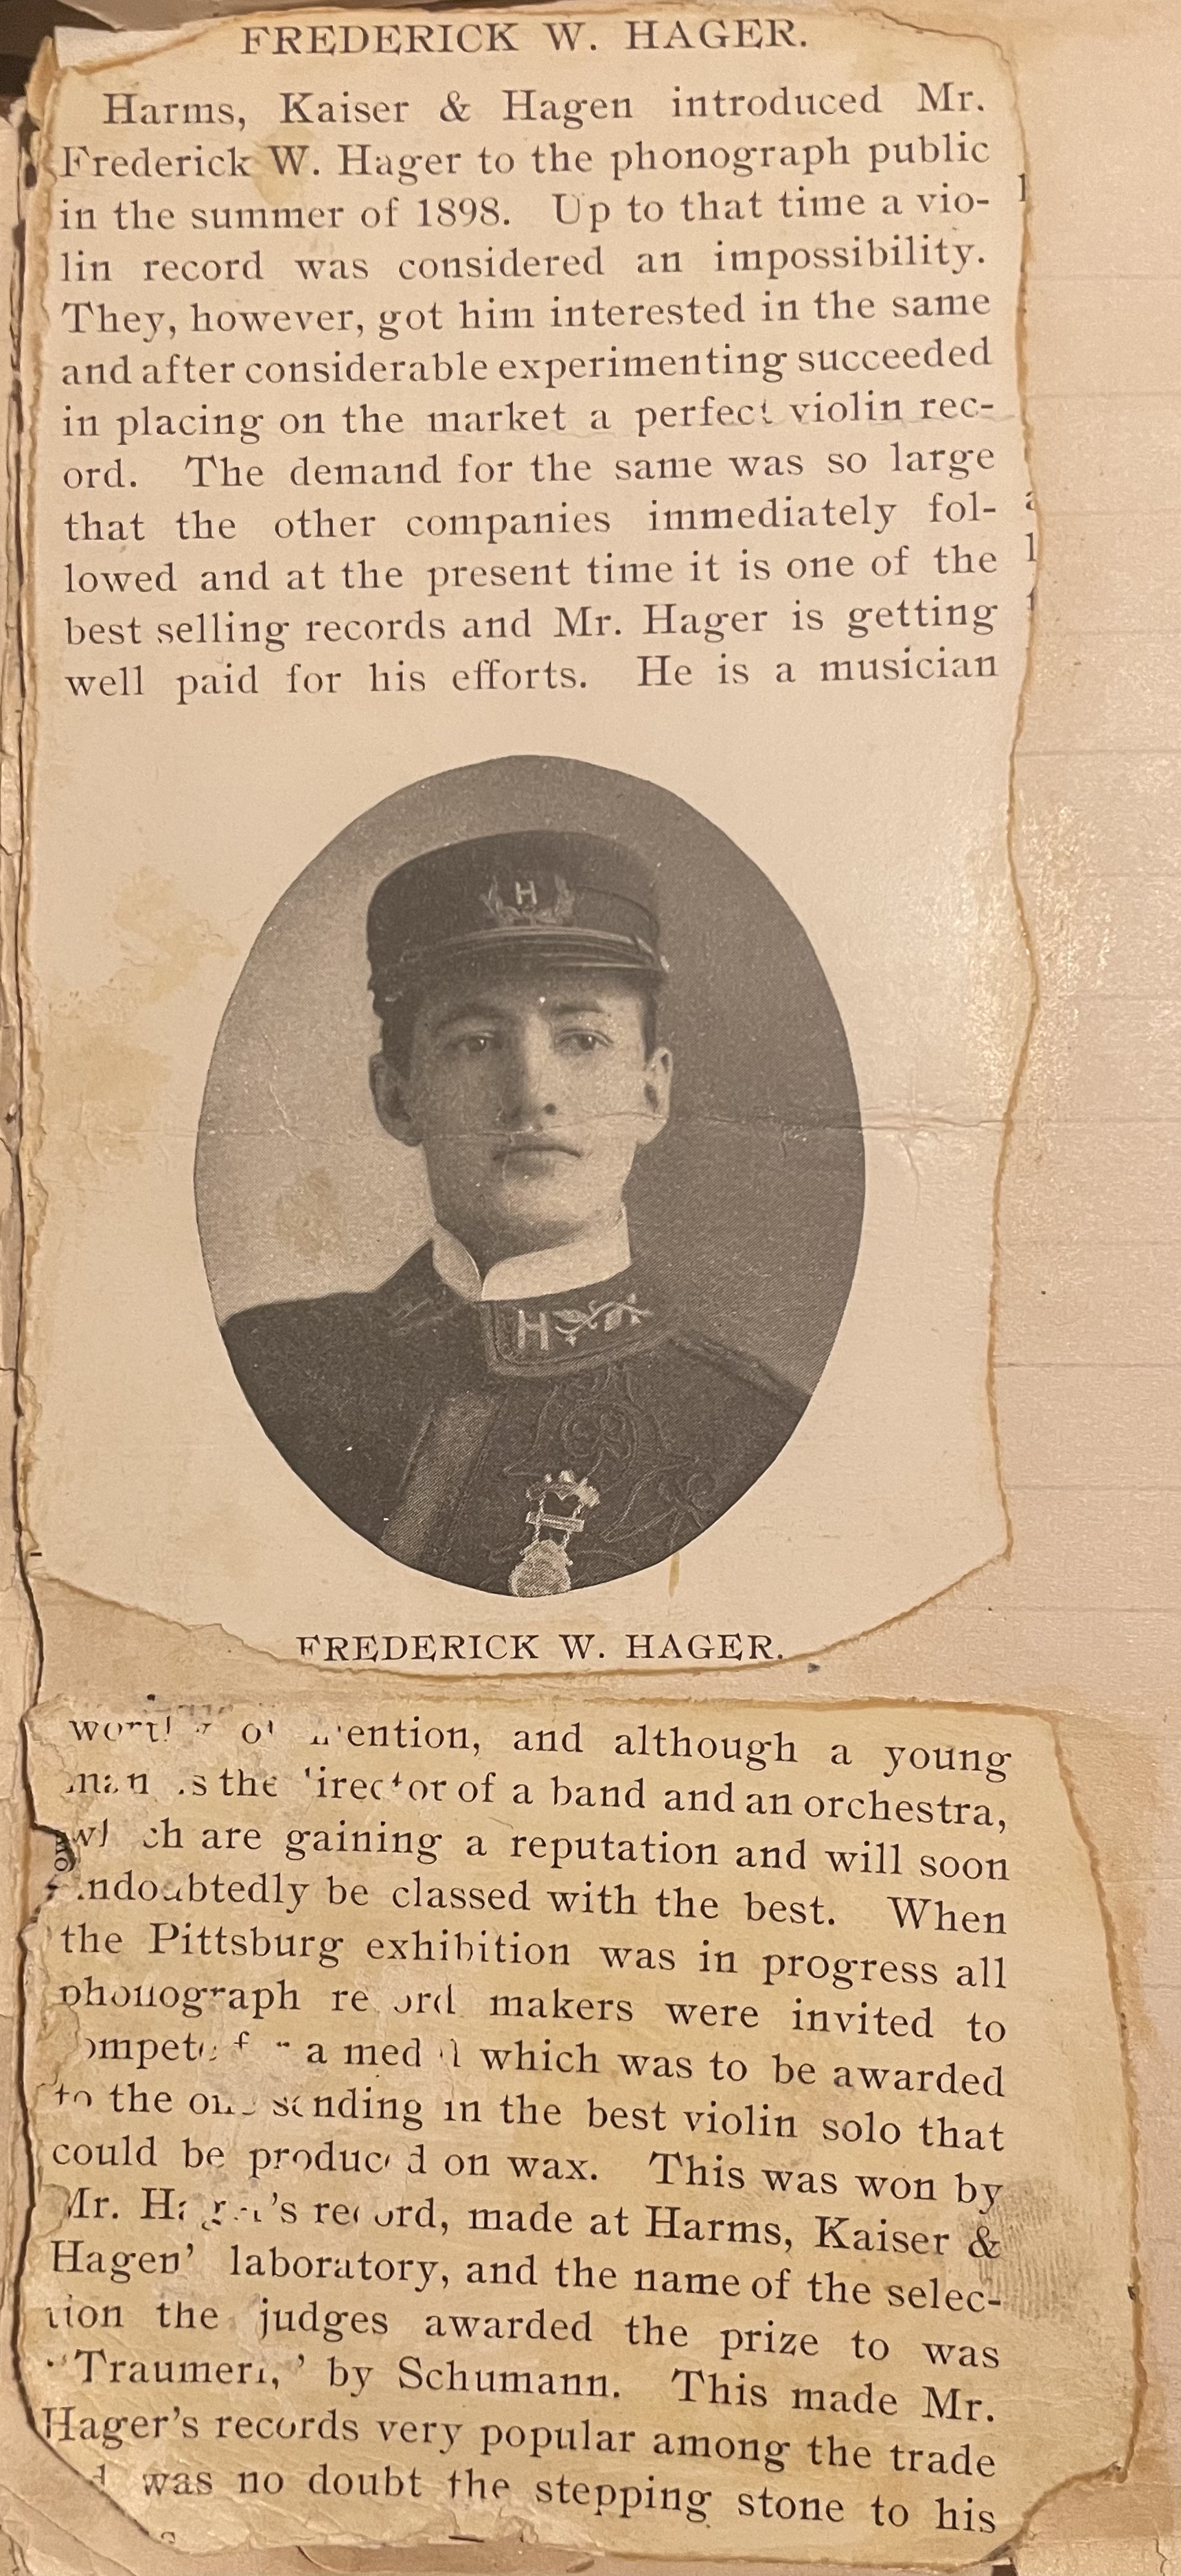 FREDERICK W. HAGER.
Harms, Kaiser & Hagen introduced Mr.
Frederick W. Hager to the phonograph public
in the summer of 1898. Up to that time a vio-
lin record was considered an impossibility.
They, however, got him interested in the same
and after considerable experimenting succeeded
in placing on the market a perfect violin rec-
ord. The demand for the same was so large
that the other companies immediately fol-
lowed and at the present time it is one of the
best selling records and Mr. Hager is getting
well paid for his efforts. He is a musician
H
H
FREDERICK W. HAGER.
worthy of mention, and although a young
man is the director of a band and an orchestra,
which are gaining a reputation and will soon
undoubtedly be classed with the best. When
the Pittsburg exhibition was in progress all
phonograph record makers were invited to
compete for a medal which was to be awarded
to the one sending in the best violin solo that
could be produced on wax. This was won by
Mr. Hager's record, made at Harms, Kaiser &
Hagen' laboratory, and the name of the selec-
tion the judges awarded the prize to was
"Traumeri,' by Schumann. This made Mr.
Hager's records very popular among the trade
was no doubt the stepping stone to his